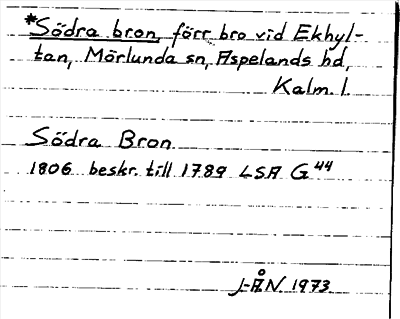 *Södra bron, förr bro vid Ekhyl-
tan, Mörlunda sn, Aspelands hd,
Kalm. l.
Södra Bron
1806 beskr. till 1789 LSA G 44
J-ÅN. 1973